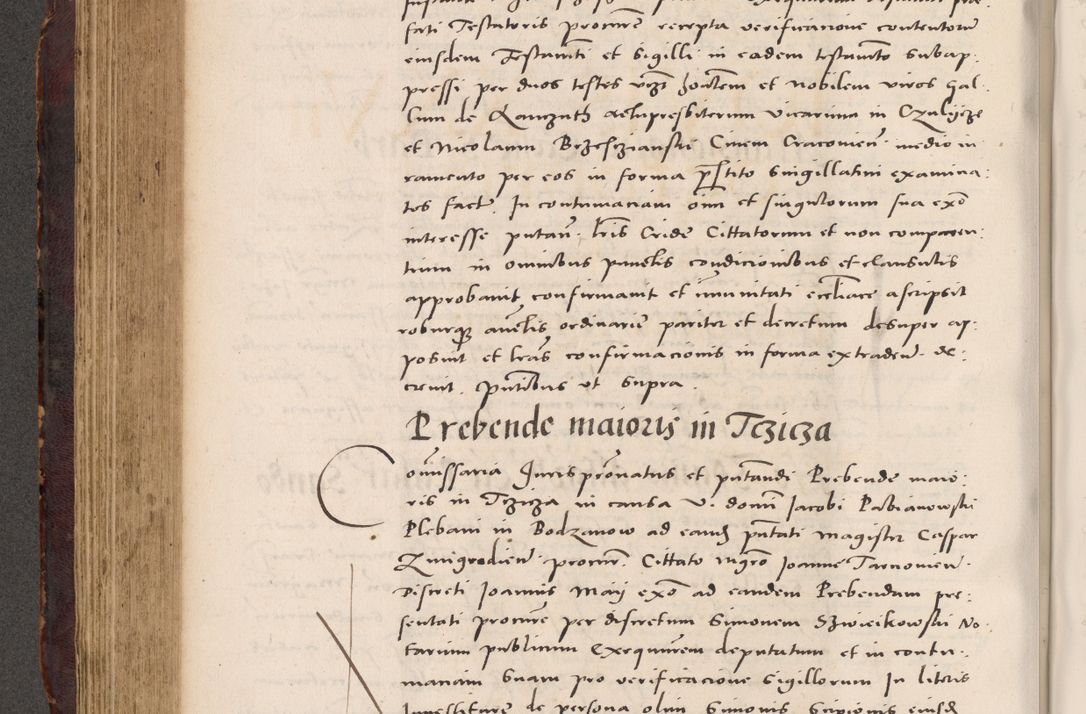 fati Testatoris procurē recepta verificacione contentorum
eiusdem Testamēti et Sigilli in eadem testamēto subap:
pressi per duos testes vꝫ hōn̄lem et nobilem viros Gal:
lum de archipresbiterum vicarium in
et Nicolaum Civem Cracovien̄ medio iu:
ramento per eos in forma singillatim examina:
tos fact̄. In contumaciam om̄i et singulorum sua exn̄
interesse putan̄. Cride Cittatorum et non comparen:
tium in omnibus punctis condicionibus et clausulis
approbavit confirmavit et imunitati eccl̄iace ascripsit
roburqꝫ ordinarie pariter et decretum desuper ap:
posuit et lrās confirmacionis in forma extraden̄. de:
crevit. p̄ntibus ut supra.
Prebende maioris in Tczicza
Com̄issaria Jurispr̄onatus et p̄ntandi Prebende maio:
ris in Tczicza in causa v. domi Jacobi Pabianowski
Plebani in Bodzanow ad eand̄ p̄ntati magister Caspar
Zmigrodien̄ procur̄. Cittato mgr̄o Joanne Tarnovien̄.
Discreti Joannis Maij exn̄ ad eandem Prebendam pre:
sentati procurē per discretum Simonem No:
tarium publicum Exequutrem deputatum et in contu:
maciam suam pro verificacione Sigillorum In literis
Investiturē de persona olim Simonis Scipionis eiusd̄